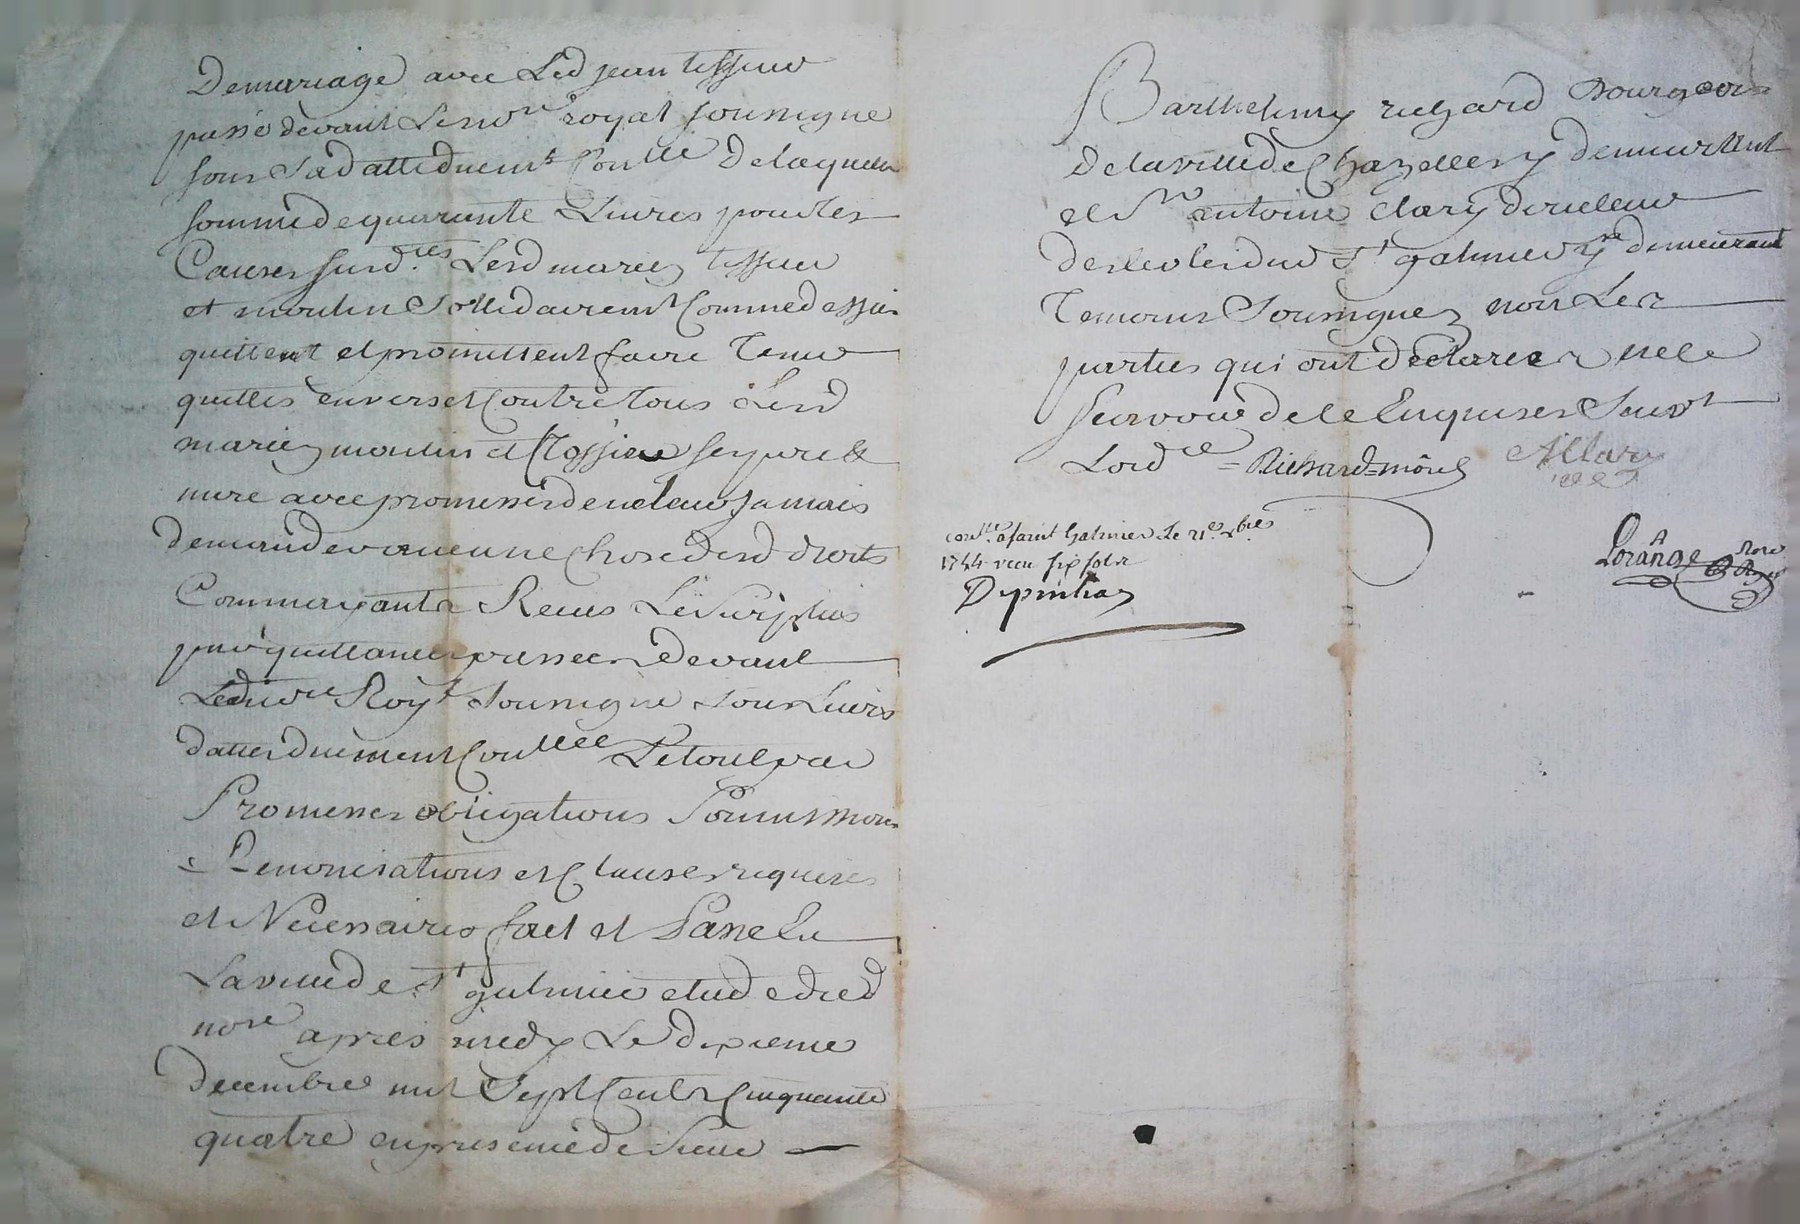 De mariage avec Led jean tisseur
passé devant Le no.re royal soussigne
sous sa datte duem.t Con.llé De laquelle
somme de quarante Livres pour les
Causes susd.ites Lesd mariez tisseur
et moulin Sollidairem.t Comme dessus
quittent et promettent faire Tenir
quittes envers et Contre tous Lesd
mariez moulin et
avec promesses de ne leur jamais
demander aucune Chose desd droits
Comme ayants Recus Le surplus
par quittances passees Devant
Led no.re Roy.l soussigne sous Leurs
dattes duement Con.llée Le tout par
Promesses obligations Soumissions
Renonciations et Clauses requises
et Necessaires fait et Passe En
La ville de S.t galmier etude dud
no.re apres midy Le dixieme
decembre mil Sept Cents Cinquante
quatre en presence de Sieur
Barthelemy richard Bourgeois
De la ville de Chazelles y demeurant
et S.r antoine clary
S.t galmier y demeurant
Temoins Soussignez non Les
parties qui ont déclarées ne le
scavoir de ce Enquises Suiv.t
Lord.ce = Richard = Allary
con.llé a saint Galmier Le 21.e xbre
1754 recu six sols
Depinhas
Lorange Nore
Royal